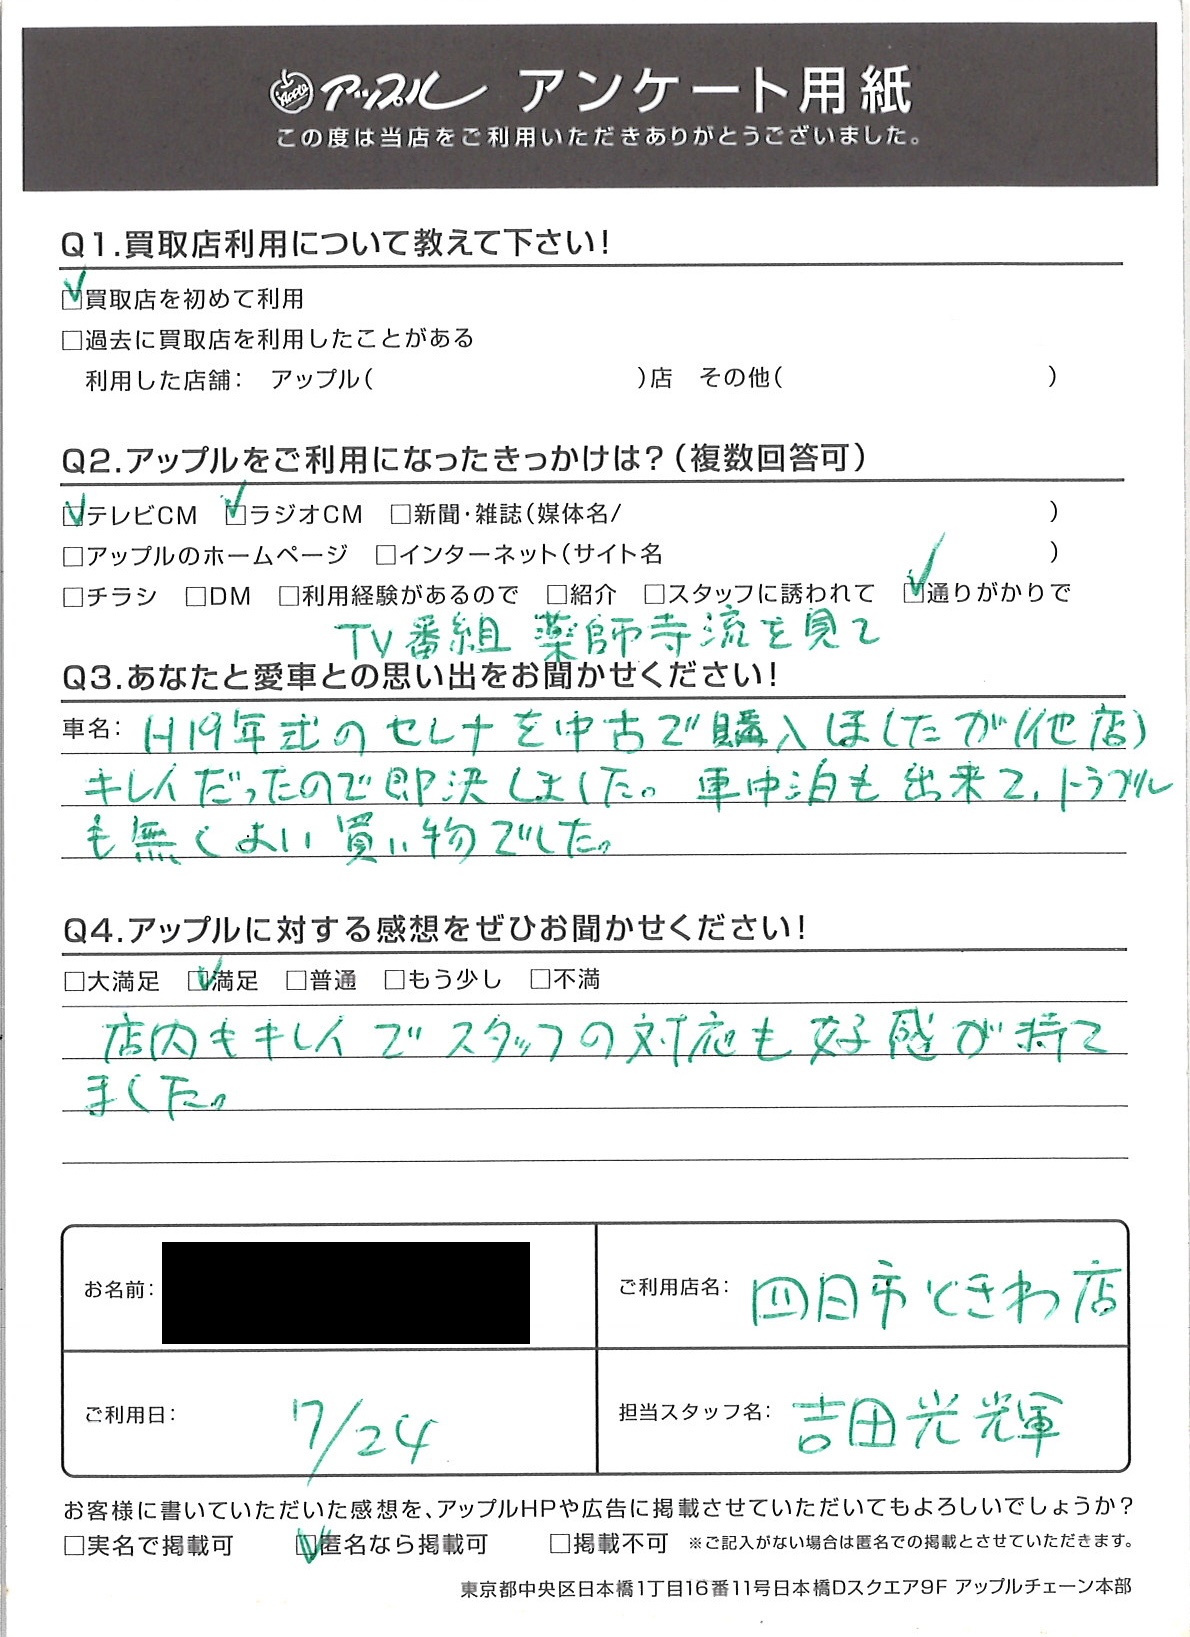 Apple アップル アンケート用紙
この度は当店をご利用いただきありがとうございました。
Q1.買取店利用について教えて下さい!
☑買取店を初めて利用
□過去に買取店を利用したことがある
利用した店舗: アップル( )店 その他( )
Q2.アップルをご利用になったきっかけは?(複数回答可)
☑テレビCM ☑ラジオCM □新聞・雑誌(媒体名/ )
□アップルのホームページ □インターネット(サイト名 )
□チラシ □DM □利用経験があるので □紹介 □スタッフに誘われて ☑通りがかりで
TV番組 薬師寺流を見て
Q3.あなたと愛車との思い出をお聞かせください!
車名: H19年式のセレナを中古で購入ましたが(他店)
キレイだったので即決しました。車中泊も出来て、トラブル
も無くよい買い物でした。
Q4.アップルに対する感想をぜひお聞かせください!
□大満足 ☑満足 □普通 □もう少し □不満
店内もキレイでスタッフの対応も好感が持て
ました。
お名前: ご利用店名: 四日市ときわ店
ご利用日: 7/24 担当スタッフ名: 吉田光輝
お客様に書いていただいた感想を、アップルHPや広告に掲載させていただいてもよろしいでしょうか?
□実名で掲載可 ☑匿名なら掲載可 □掲載不可 ※ご記入がない場合は匿名での掲載とさせていただきます。
東京都中央区日本橋1丁目16番11号日本橋Dスクエア9F アップルチェーン本部